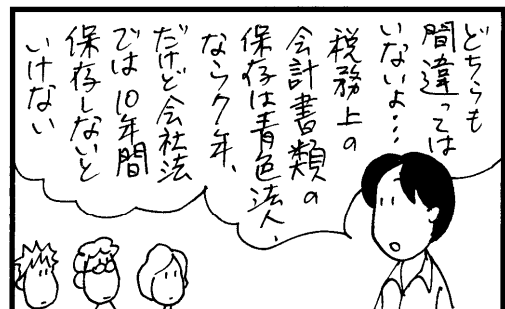 どちらも
間違っては
いないよ…
税務上の
会計書類の
保存は青色法人、
なら7年、
だけど会社法
では10年間
保存しないと
いけない